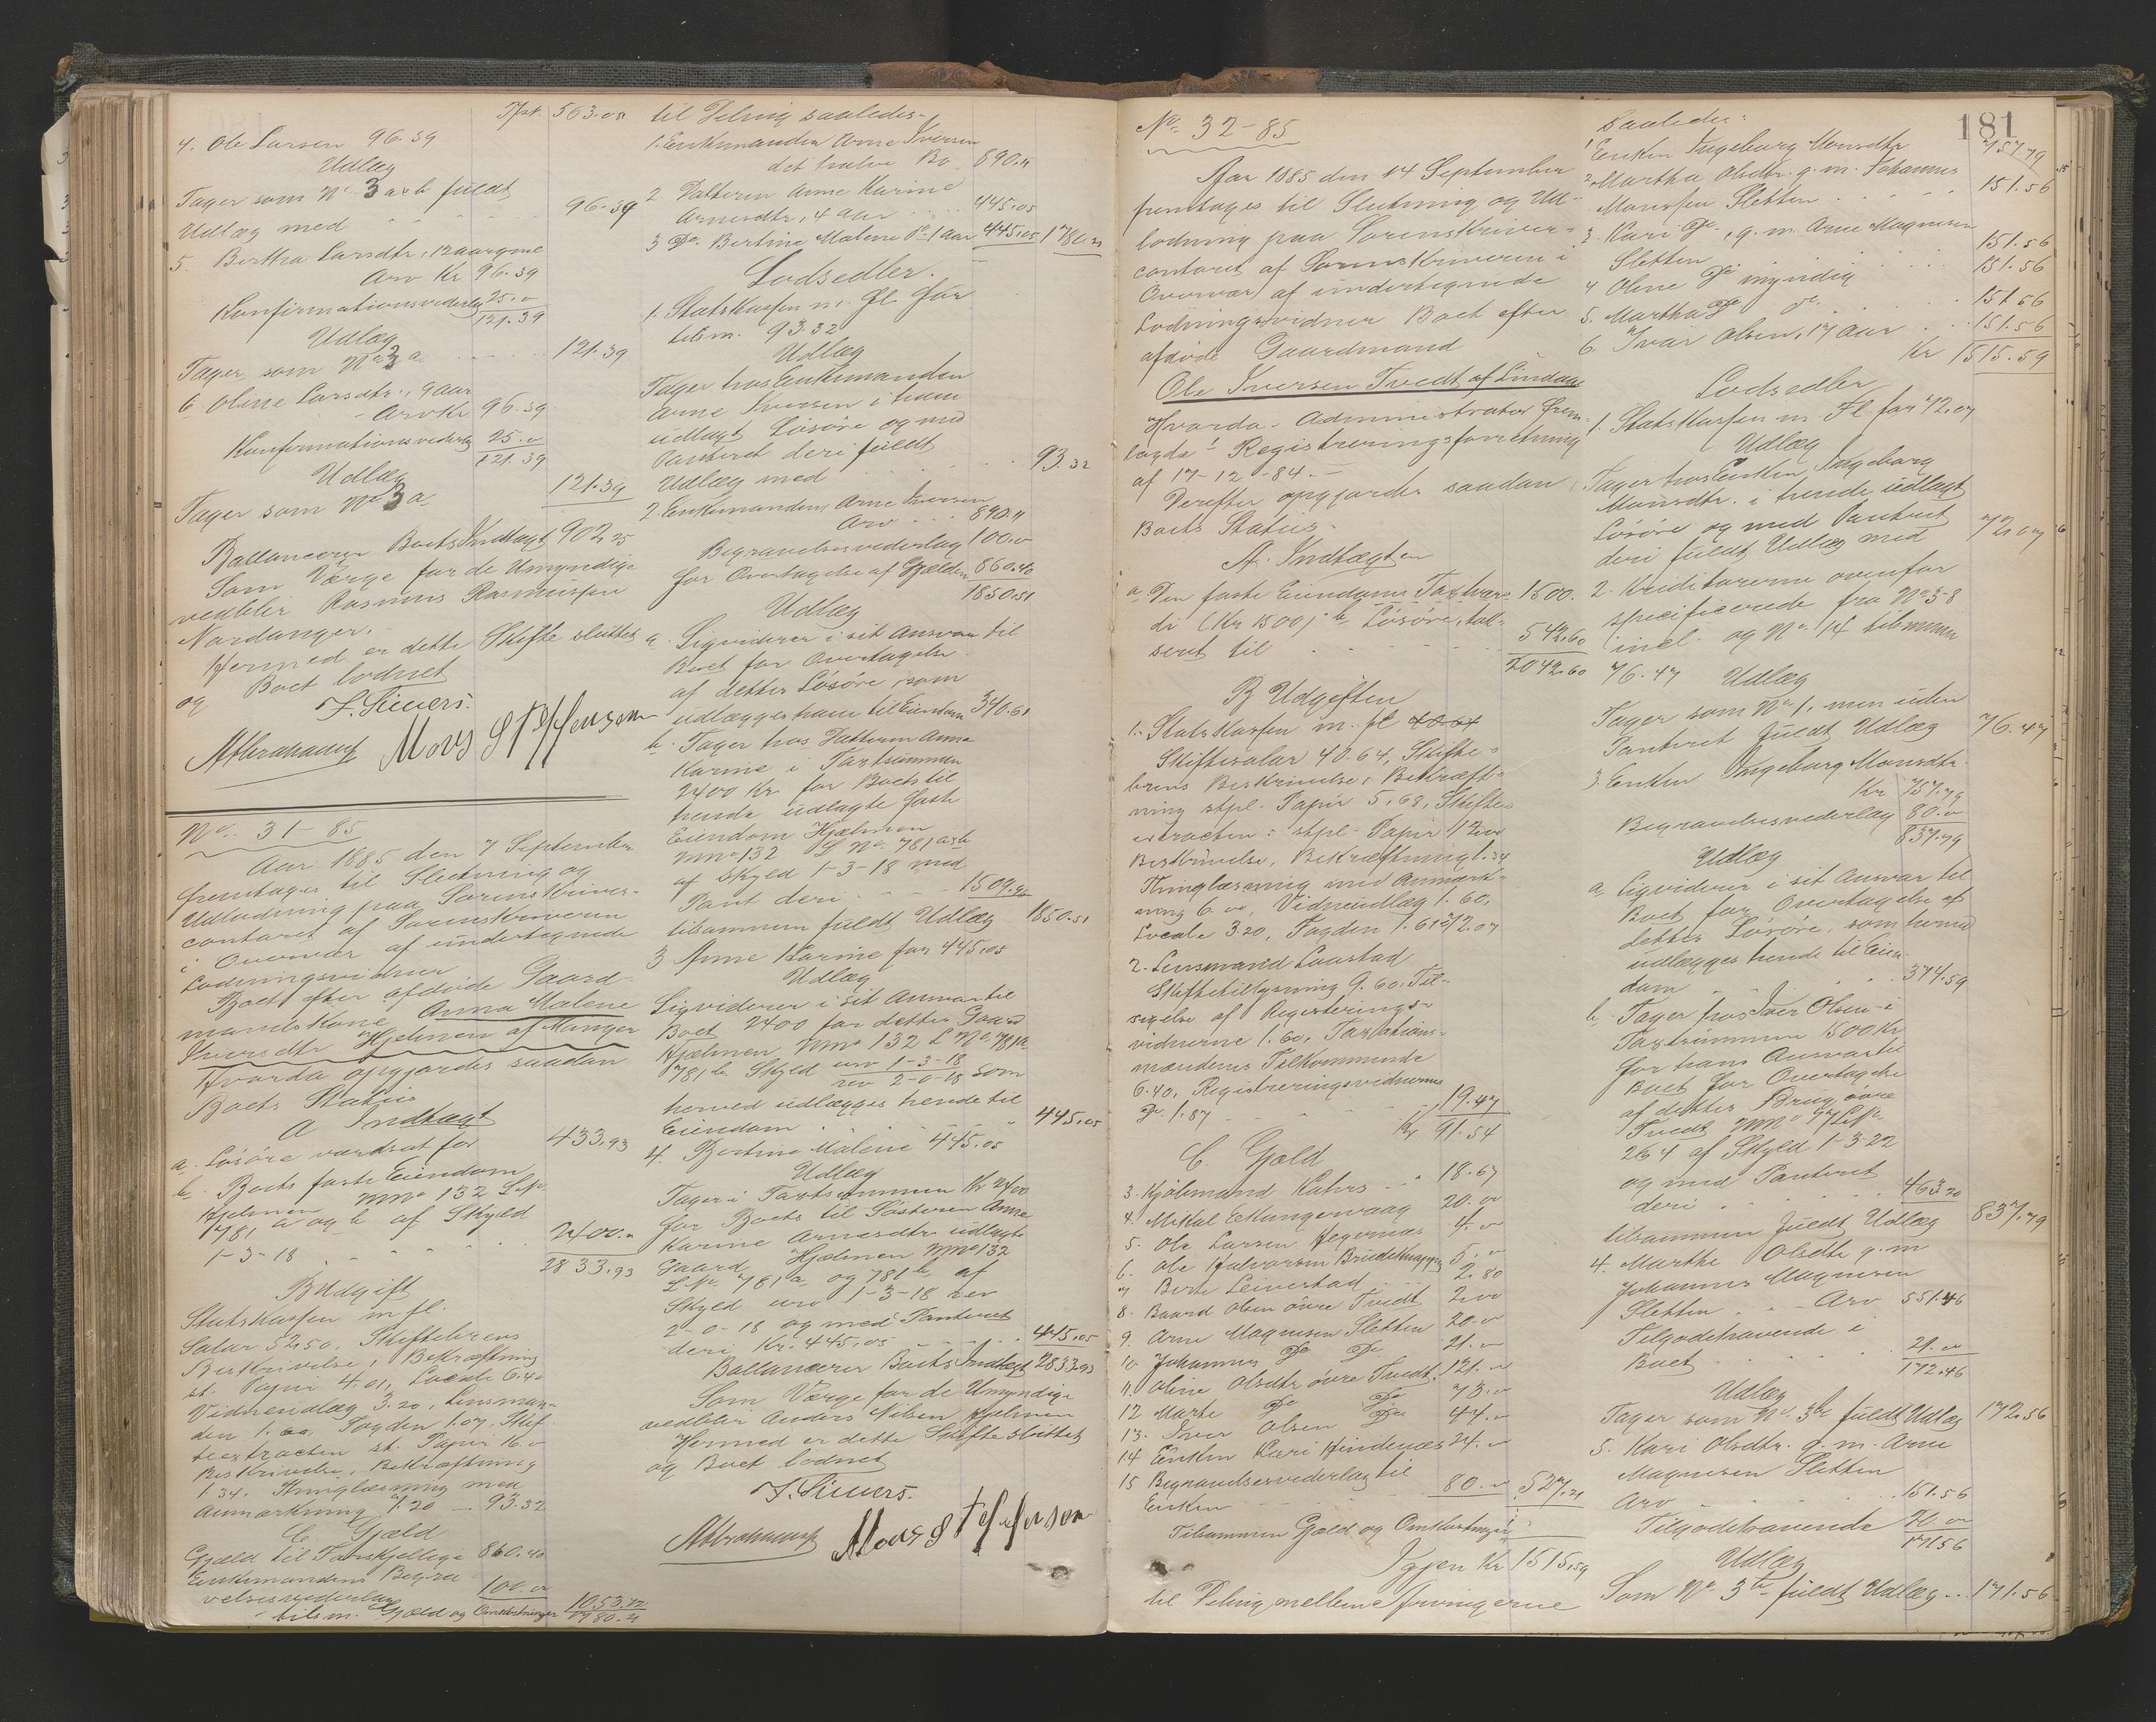 Tpt. 563.00
4. Ole Larsen 96.39
Udlæg
Tager som No 3 a & b fuldt
Udlæg med 96.39
5. Bertha Larsdtr., 12 aar gml
Arv Kr 96.39
Konfirmationsvederlag 25.00
121.39
Udlæg
Tager som No 3 a 121.39
6. Oline Larsdtr., 9 aar
Arv Kr 96.39
Konfirmationsvederlag 25.00
121.39
Udlæg
Tager som No 3 a 121.39
Ballancerer Boets Indtægt 902.25
Som Værge for de Umyndige
vedbliver Rasmus Rasmussen
Nordanger.
Hermed er dette Skifte sluttet
og Boet lodnet
F. Siewers.
Mons Steffensen
No. 31-85
Aar 1885 den 7 September
fremtages til Slutning og
Udlodning paa Sorenskriver-
contoret af Sorenskriveren
i Overvær af undertegnede
Lodningsvidner
Boet efter afdøde Gaard-
mandskone Anna Malene
Iversdtr Hjelmen af Manger
Hvorda opgjordes saadan
Boets Status
A Indtægt
a. Løsøre værdsat for 433.93
b. Boets faste Eiendom
Hjelmen Mno 132 L.No.
781 a og b af Skyld
1-3-18 2400.00
2833.93
B Udgift
Statskassen m fl.
Salar 52.50, Skiftebrevs
Beskrivelse, Bekræftning
st. Papir 4.01, Locale 6.40
Vidneudlæg 3.20, Lensman-
den 1.60, Fogden 1.07, Skif-
teextracten st. Papir 16.00
Beskrivelse, Bekræftning
1.34. Thinglæsning med
Anmærkning 7.20 — 93.32
C Gjæld
Gjæld til Forskjellige 860.40
Enkemandens Begra-
velsesvederlag 100.00
tils m. Gjæld og Omkostninger 1053.72
1780.21
til Deling saaledes-
1. Enkemanden Arne Iversen
det halve Bo 890.11
2 Datteren Anne Karine
Arnesdtr, 4 aar 445.05
3 Do. Bertine Malene Do 1 aar 445.05 1780.21
Lodsedler.
1. Statskassen m. fl. for
tilsm. 93.32
Udlæg
Tager hos Enkemanden
Arne Iversen i ham
udlagt Løsøre og med
Panteret deri fuldt
Udlæg med 93.32
2. Enkemanden Arne Iversen
Arv 890.11
Begravelsesvederlag 100.00
for Overtagelse af Gjælden 860.40
1850.51
Udlæg
a. Liqviderer i sit Ansvar til
Boet for Overtagelse
af dettes Løsøre, som
udlægges ham til Eiendom 340.61
b. Tager hos Datteren Anne
Karine i Taxtsummen
2400 Kr. for Boets til
hende udlagte faste
Eiendom Hjelmen
Mno 132 L No. 781 a & b
af Skyld 1-3-18 med
Pant deri 1509.90
tilsammen fuldt Udlæg 1850.51
3 Anne Karine for 445.05
Udlæg
Liqviderer i sit Ansvar til
Boet 2400 for dettes Gaard
Hjelmen Mno 132 L No 781 a
781 b Skyld urv 1-3-18
rev 2-0-18 som
herved udlægges hende til
Eiendom 445.05
4. Bertine Malene 445.05
Udlæg
Tager i Taxtsummen Kr 2400
for Boets til Søsteren Anne
Karine Arnesdtr udlagte
Gaard Hjelmen Mno 132
L.No. 781 a og 781 b af
Skyld urv 1-3-18 rev
2-0-18 og med Panteret
deri Kr. 445.05 445.05
Ballancerer Boets Indtægt 2833.93
Som Værge for de Umyndige
vedbliver Anders Nilsen Hjelmen
Hermed er dette Skifte sluttet
og Boet lodnet
F. Siewers.
Mons Steffensen
No. 32-85
Aar 1885 den 14 September
fremtages til Slutning og Ud-
lodning paa Sorenskriver-
contoret af Sorenskriveren i
Overvær af undertegnede
Lodningsvidner Boet efter
afdøde Gaardmand
Ole Iversen Tvedt af Lindaas
Hvorda Administrator frem-
lagde: Registreringsforretning
af 17-12-84.
Derefter opgjordes saadan
Boets Status.
A. Indtægten
a Den faste Eiendoms Taxtvær- 1500.
di (Kr 1500) b, Løsøre, tak-
seret til 542.60
2042.60
B Udgiften
1. Statskassen m. fl 40.64
Skiftesalar 40.64, Skifte-
brevs Beskrivelse, Bekræft-
ning stpl. Papir 5.68, Skifte-
extracten: stpl. Papir 12.00
Beskrivelse, Bekræftning 1.34
Thinglæsning med Anmærk-
ning 6.00, Vidneudlæg 1.60,
Locale 3.20, Fogden 1.61 72.07
2. Lensmand Laastad
Skiftetillysning 9.60, Til-
sigelse af Registrerings-
vidnerne 1.60, Taxations-
mændenes Tilkommende
6.40, Registreringsvidnernes
Do 1.87 19.47
Kr 91.54
C. Gjæld
3. Kjøbmand Kahrs 18.67
4. Mikal Eknangervaag 20.00
5. Ole Larsen Hegernæs 4.00
6. Ole Halvorsen Brudeknappen 5.00
7 Berte Leiverstad 2.80
8. Baard Olsen øvre Tvedt 2.00
9. Arne Magnesen Sletten 20.00
10 Johannes Do Do 21.00
11. Oline Olsdtr øvre Tvedt 121.00
12 Marte Do Do 73.00
13. Iver Olsen Do 44.00
14 Enken Kari Hindenes 24.00
15 Begravelsesvederlag til
Enken 80.00 527.01
Tilsammen Gjæld og Omkostninger
Igjen Kr 1515.59
til Deling mellem Arvingerne
181
Saaledes:
1 Enken Ingeborg Monsdtr 757.79
2 Martha Olsdtr. g. m. Johannes
Monssen Sletten 151.56
3. Kari Do., g. m. Arne Magnesen
Sletten 151.56
4 Oline Do myndig 151.56
5. Martha Do do. 151.56
6. Ivar Olsen, 17 Aar 151.56
Kr 1515.59
Lodsedler
1. Statskassen m. Fl. for 72.07
Udlæg
Tager hos Enken Ingeborg
Monsdtr. i hende udlagt
Løsøre og med Panteret
deri fuldt Udlæg med 72.07
2. Kreditorerne ovenfor
specificerede fra No 3-8
incl. og No. 14 tilsammen
76.47 Udlæg
Tager som No 1, men uden
Panteret fuldt Udlæg 76.47
3. Enken Ingeborg Monsdtr.
Kr 757.79
Begravelsesvederlag 80.00
837.79
Udlæg
a Liqviderer i sit Ansvar til
Boet for Overtagelse af
dettes Løsøre, som herved
udlægges hende til Eien-
dom 374.59
b. Tager hos Iver Olsen i
Taxtsummen 1500 Kr
for hans Ansvar til
Boet for Overtagelse
af dettes Brug øvre
Tvedt Mno 97 L.No.
264 af Skyld 1-3-22
og med Panteret
deri 463.20
tilsammen fuldt Udlæg 837.79
4. Marthe Olsdtr g. m
Johannes Magnesen
Sletten Arv 151.46
Tilgodehavende i
Boet 21.00
172.46
Udlæg
Tager som No. 3 b fuldt Udlæg 172.56
5. Kari Olsdtr. g. m. Arne
Magnesen Sletten
Arv 151.56
Tilgodehavende 20.00
171.56
Udlæg
Som No 3 b fuldt Udlæg 171.56